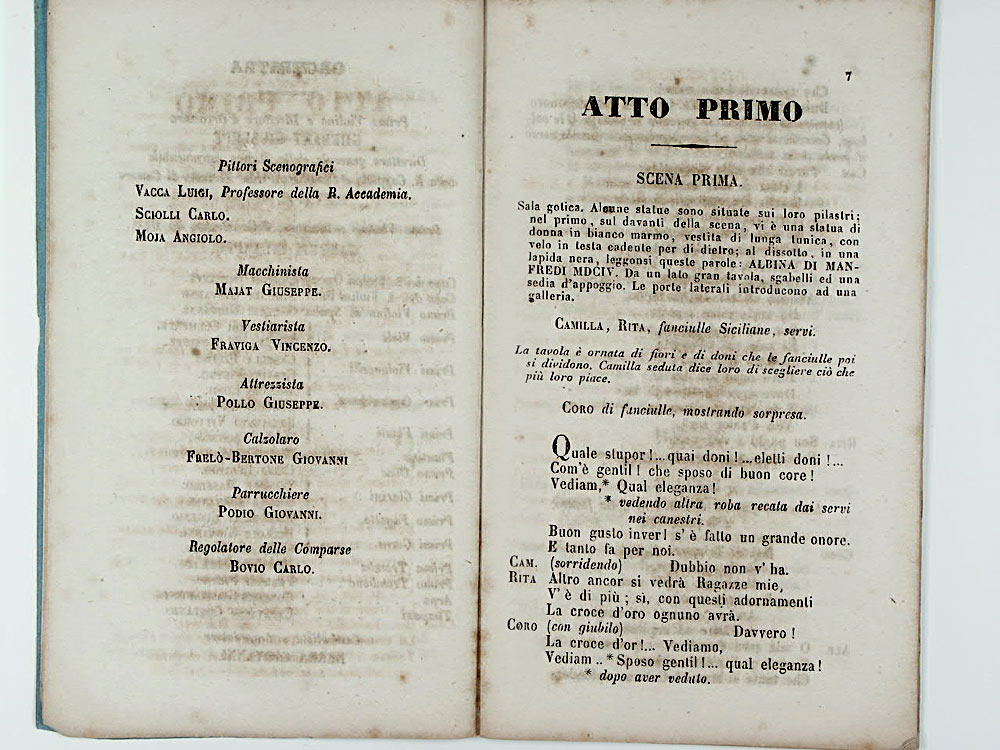 Pittori Scenografici
VACCA LUIGI, Professore della R. Accademia.
SCIOLLI CARLO.
MOJA ANGIOLO.
Macchinista
MAJAT GIUSEPPE.
Vestiarista
FRAVIGA VINCENZO.
Attrezzista
POLLO GIUSEPPE.
Calzolaro
FRELÒ-BERTONE GIOVANNI
Parrucchiere
PODIO GIOVANNI.
Regolatore delle Comparse
BOVIO CARLO.
7
ATTO PRIMO
SCENA PRIMA.
Sala gotica. Alcune statue sono situate sui loro pilastri;
nel primo, sul davanti della scena, vi è una statua di
donna in bianco marmo, vestita di lunga tunica, con
velo in testa cadente per di dietro; al dissotto, in una
lapida nera, leggonsi queste parole: ALBINA DI MAN-
FREDI MDCIV. Da un lato gran tavola, sgabelli ed una
sedia d'appoggio. Le porte laterali introducono ad una
galleria.
CAMILLA, RITA, fanciulle Siciliane, servi.
La tavola è ornata di fiori e di doni che le fanciulle poi
si dividono. Camilla seduta dice loro di scegliere ciò che
più loro piace.
CORO di fanciulle, mostrando sorpresa.
Quale stupor!...quai doni!...eletti doni!...
Com'è gentil! che sposo di buon core!
Vediam,* Qual eleganza!
* vedendo altra roba recata dai servi
nei canestri.
Buon gusto inver! s'è fatto un grande onore.
E tanto fa per noi.
CAM. (sorridendo) Dubbio non v'ha.
RITA Altro ancor si vedrà Ragazze mie,
V'è di più; sì, con questi adornamenti
La croce d'oro ognuno avrà.
CORO (con giubilo) Davvero!
La croce d'or!... Vediamo,
Vediam ..* Sposo gentil!... qual eleganza!
* dopo aver veduto.